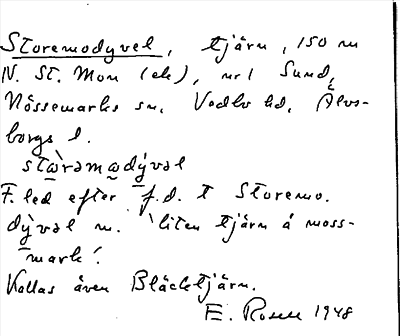 Storemodyvel, tjärn, 150 m
N. St. Mon (ek), nr 1 Sund,
Nössemarks sn, Vedbo hd, Älvs-
borgs l.
stɷ̀rəmɷdývəl
F. led efter f.d. t Storemo.
dỳvəl m. 'liten tjärn å moss-
mark'.
Kallas även Bläcktjärn.
E. Rosell 1948